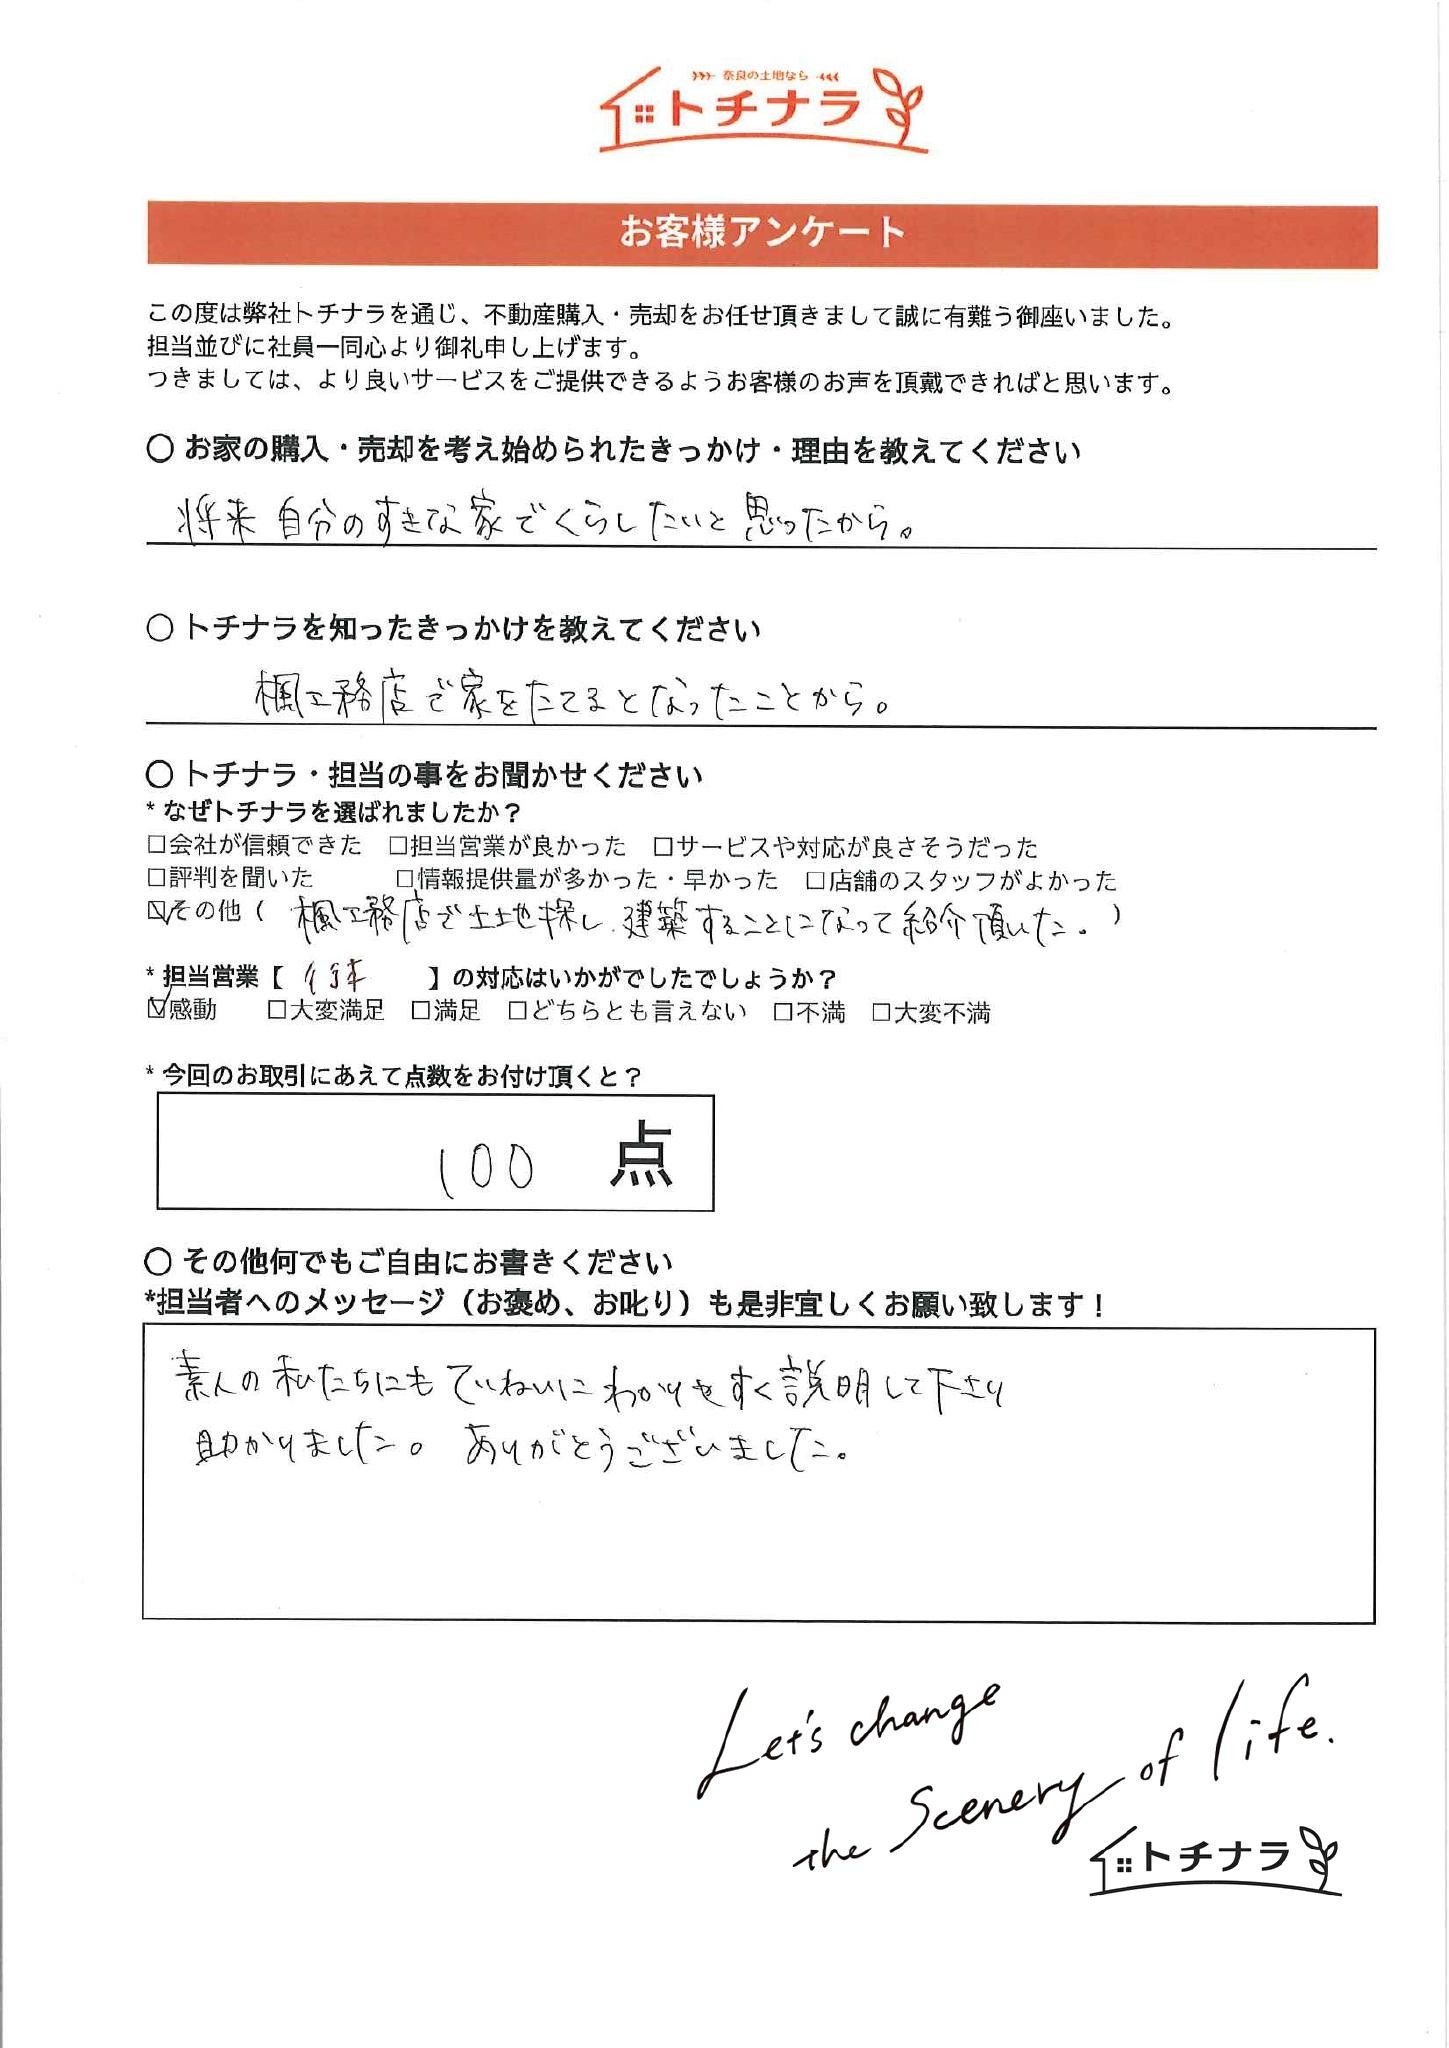 奈良の土地なら
トチナラ
お客様アンケート
この度は弊社トチナラを通じ、不動産購入・売却をお任せ頂きまして誠に有難う御座いました。
担当並びに社員一同心より御礼申し上げます。
つきましては、より良いサービスをご提供できるようお客様のお声を頂戴できればと思います。
〇 お家の購入・売却を考え始められたきっかけ・理由を教えてください
将来 自分のすきな家でくらしたいと思ったから。
〇 トチナラを知ったきっかけを教えてください
楓工務店で家をたてるとなったことから。
〇 トチナラ・担当の事をお聞かせください
* なぜトチナラを選ばれましたか？
□会社が信頼できた □担当営業が良かった □サービスや対応が良さそうだった
□評判を聞いた □情報提供量が多かった・早かった □店舗のスタッフがよかった
☑その他（ 楓工務店で土地探し、建築することになって紹介頂いた。 ）
* 担当営業【 】の対応はいかがでしたでしょうか？
☑感動 □大変満足 □満足 □どちらとも言えない □不満 □大変不満
* 今回のお取引にあえて点数をお付け頂くと？
100 点
〇 その他何でもご自由にお書きください
*担当者へのメッセージ（お褒め、お叱り）も是非宜しくお願い致します！
素人の私たちにもていねいにわかりやすく説明して下さり
助かりました。ありがとうございました。
Let's change
the Scenery of life.
トチナラ